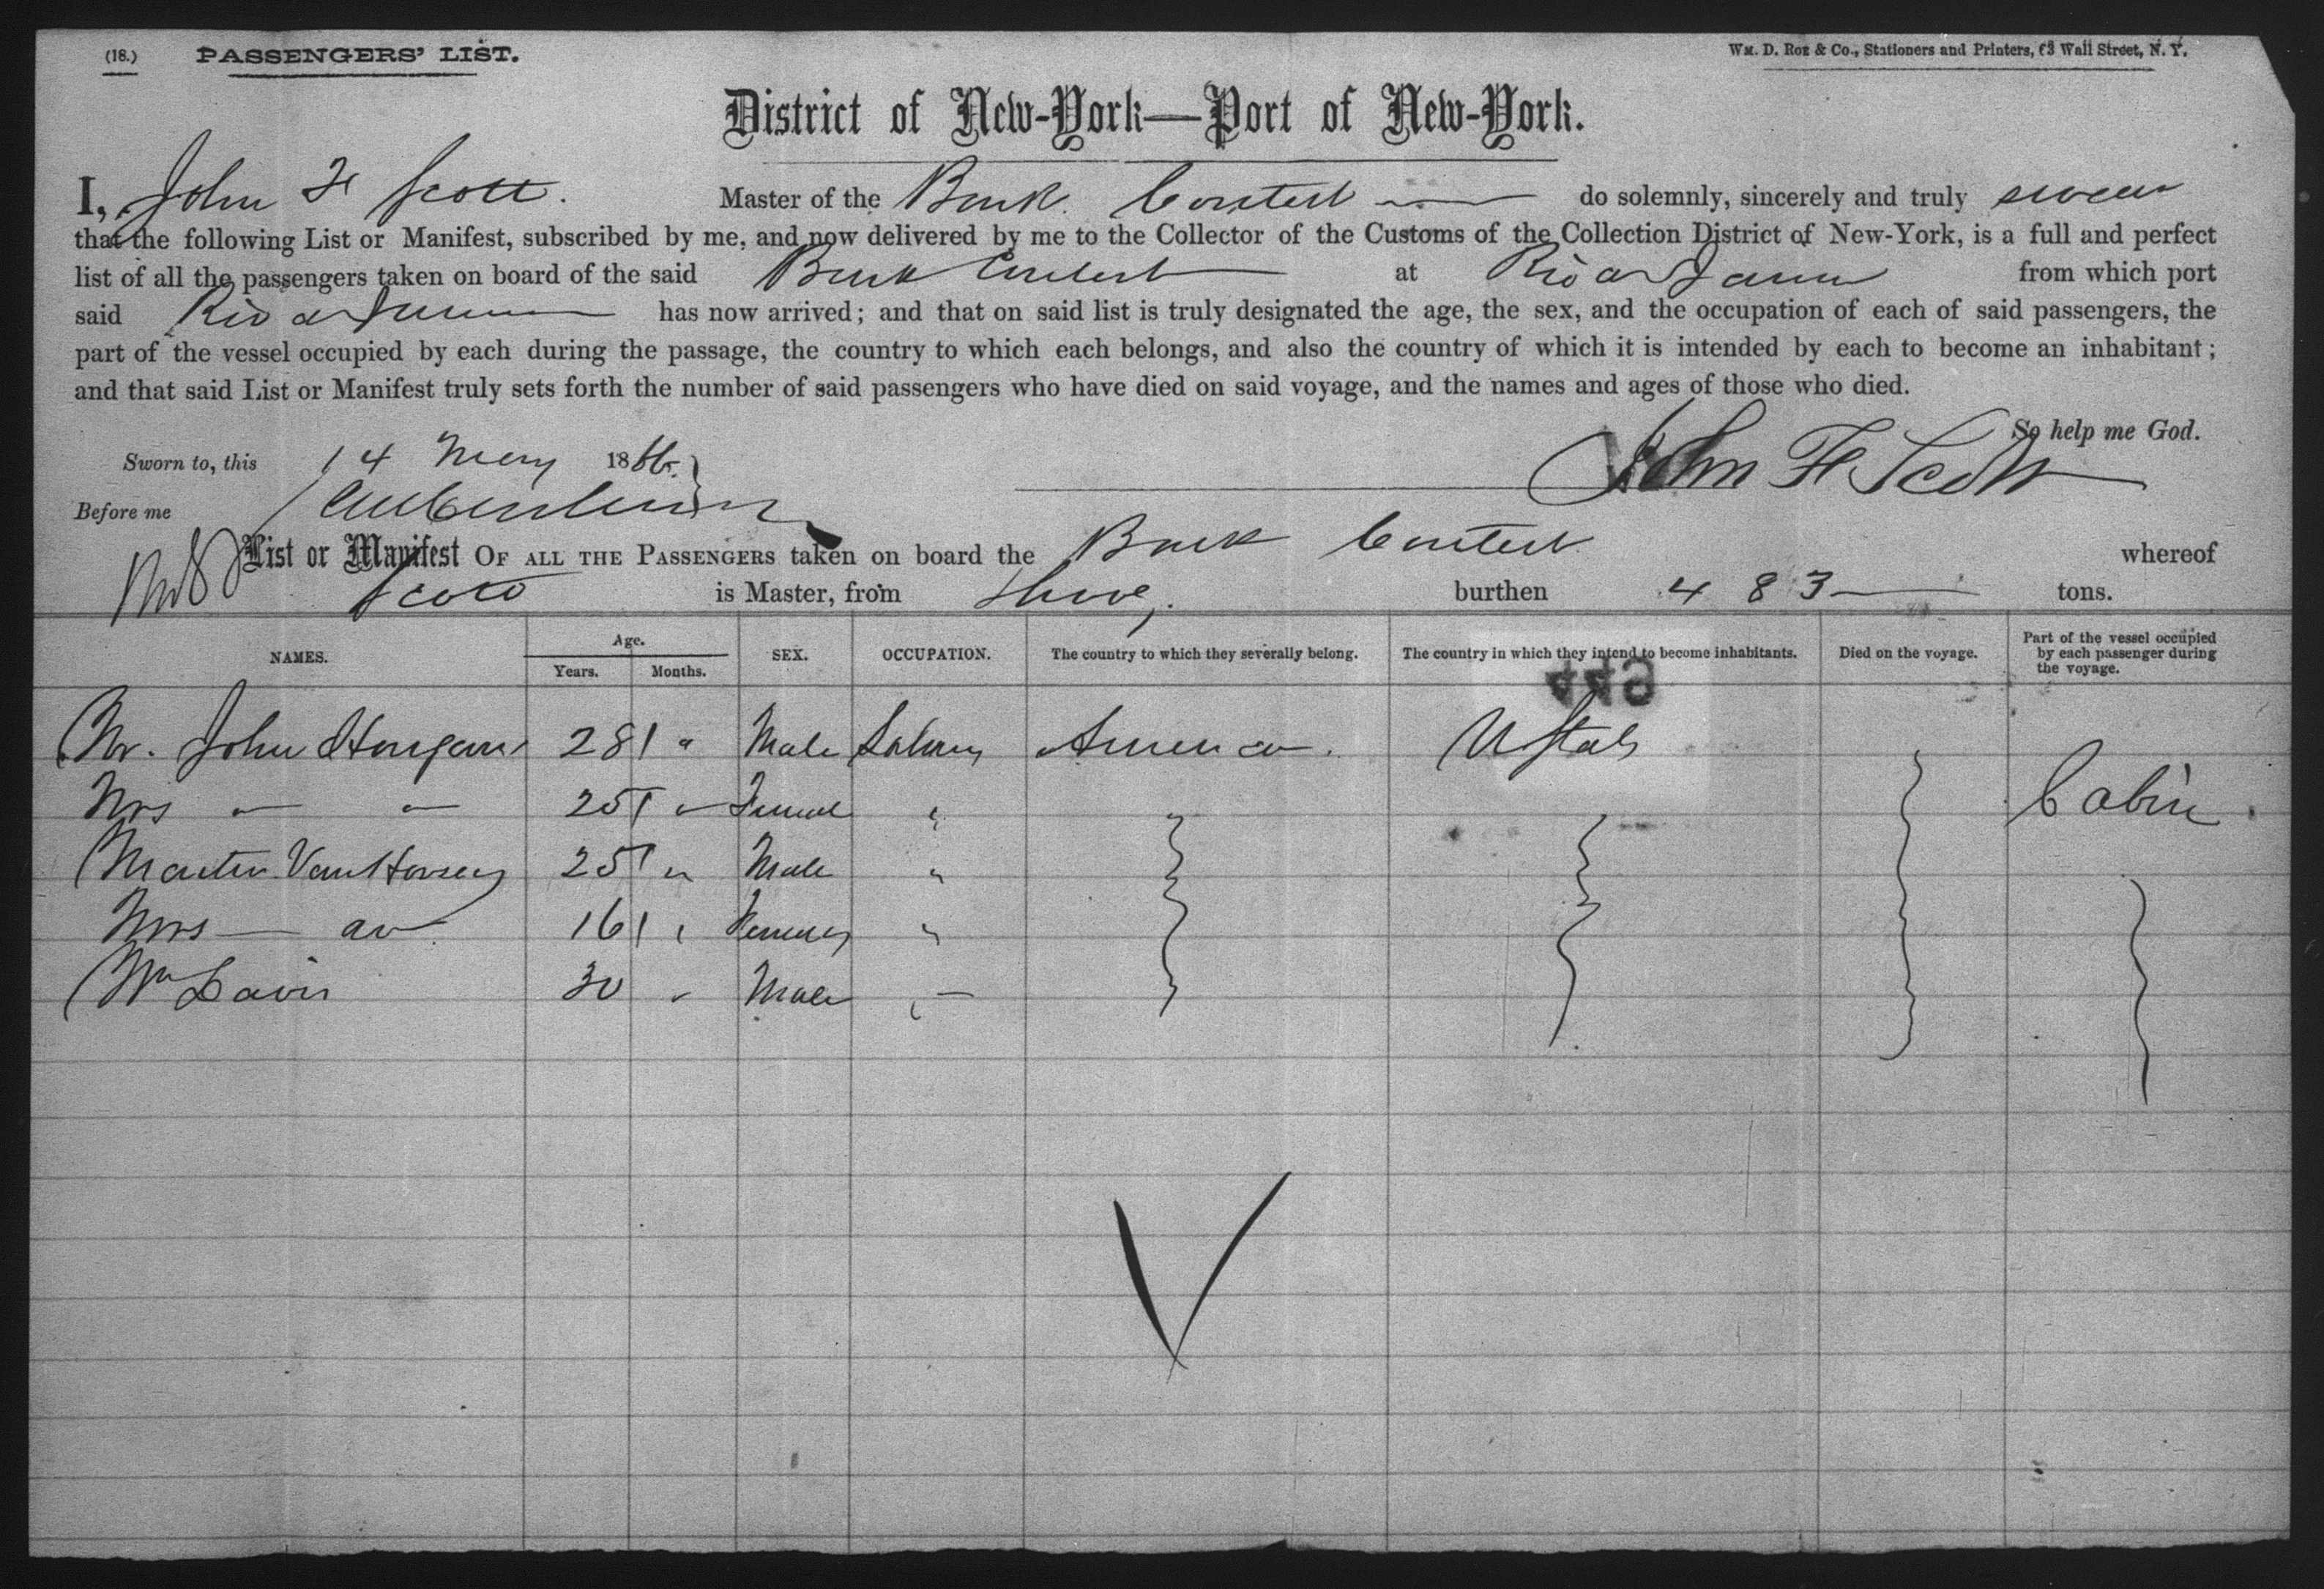 (18.) PASSENGERS' LIST. Wm. D. Roe & Co., Stationers and Printers, 63 Wall Street, N. Y.
District of New-York—Port of New-York.
I, John F Scott. Master of the Bark Contest do solemnly, sincerely and truly swear
that the following List or Manifest, subscribed by me, and now delivered by me to the Collector of the Customs of the Collection District of New-York, is a full and perfect
list of all the passengers taken on board of the said Bark Contest at Rio from which port
said Rio has now arrived; and that on said list is truly designated the age, the sex, and the occupation of each of said passengers, the
part of the vessel occupied by each during the passage, the country to which each belongs, and also the country of which it is intended by each to become an inhabitant;
and that said List or Manifest truly sets forth the number of said passengers who have died on said voyage, and the names and ages of those who died.
So help me God.
Sworn to, this 14 May 1866. John F Scott
Before me
List or Manifest OF ALL THE PASSENGERS taken on board the Bark Contest whereof
Scott is Master, from burthen 483 tons.
NAMES. Age. Years. Months. SEX. OCCUPATION. The country to which they severally belong. The country in which they intend to become inhabitants. Died on the voyage. Part of the vessel occupied by each passenger during the voyage.
Mr. John 28 " Male America U States
Mrs " " 25 " Female " Cabin
25 " Male "
Mrs 16 " "
Wm Davis 30 " Male "